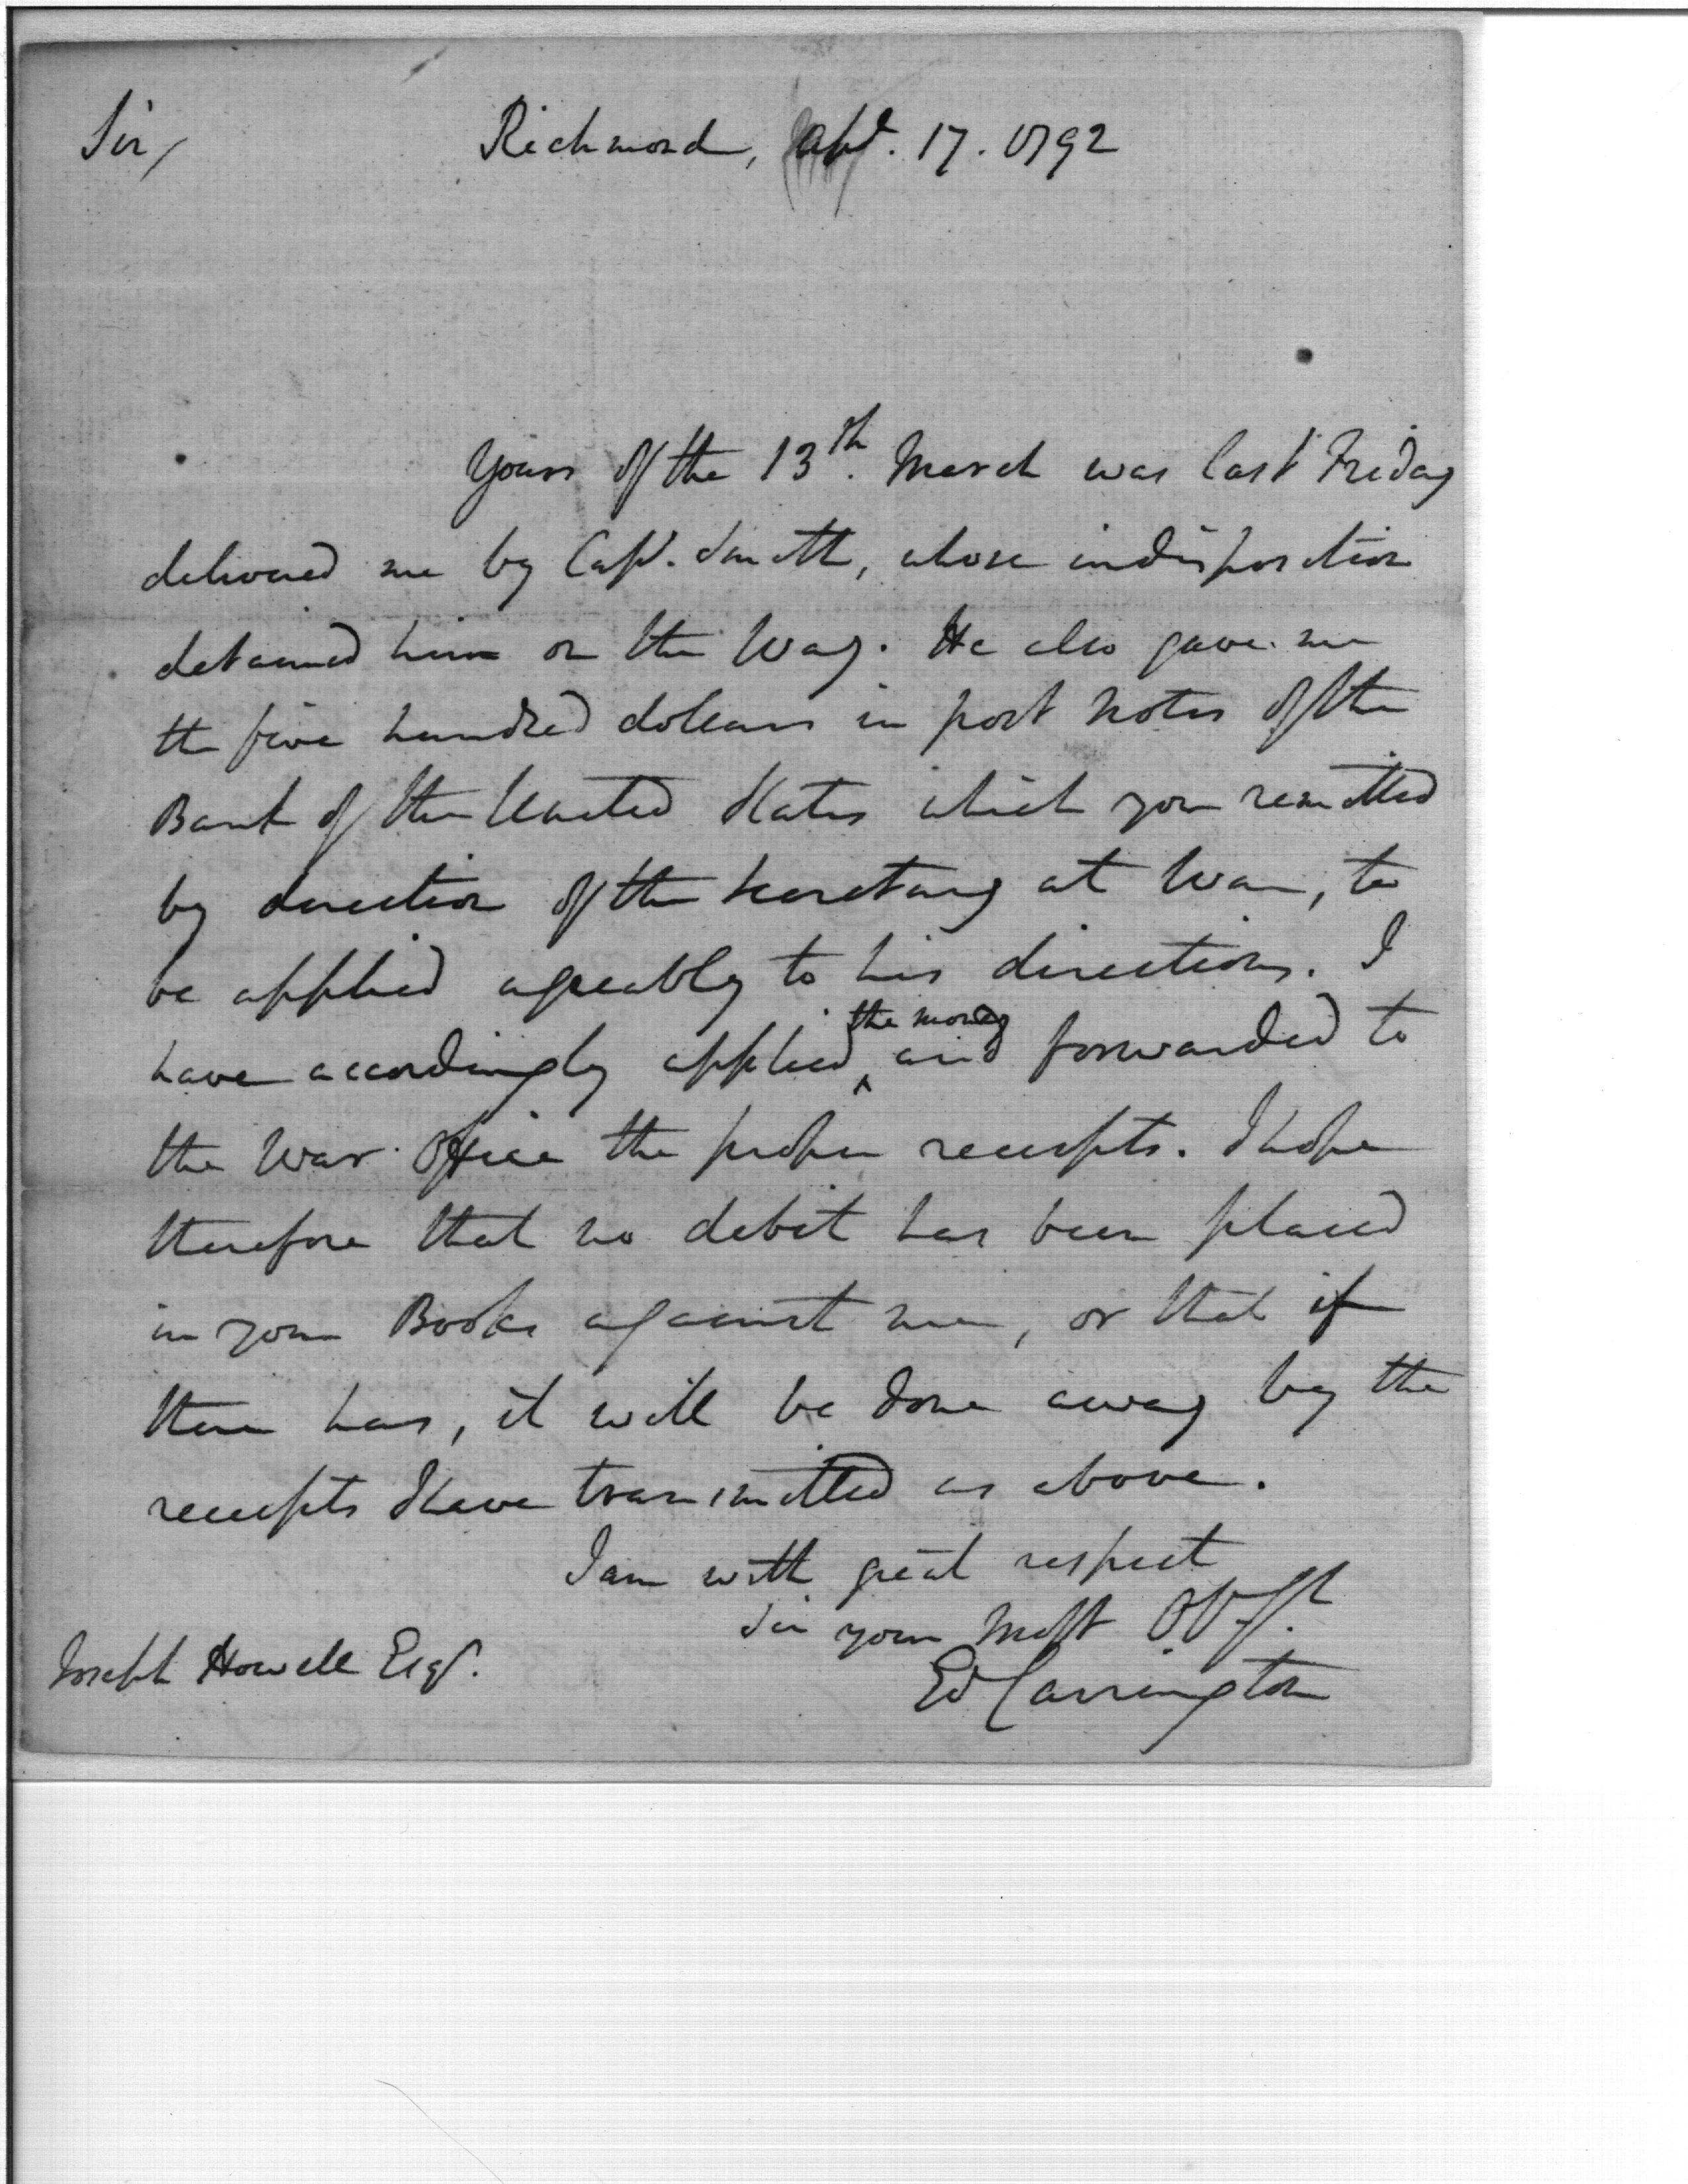 Sir, Richmond, Apl. 17. 1792
Yours of the 13th. March was last Friday
delivered me by Capt. Smith, whose indisposition
detained him on the Way. He also gave me
the five hundred dollars in post Notes of the
Bank of the United States which you remitted
by direction of the Secretary at War, to
be applied agreably to his directions. I
the money
have accordingly applied ‸ and forwarded to
the War Office the proper receipts. I hope
therefore that no debit has been placed
in your Books against me, or that if
there has, it will be done away by the
receipts I have transmitted as above.
I am with great respect
Sir your Most Obt.
Joseph Howell Esqr.
Ed Carrington